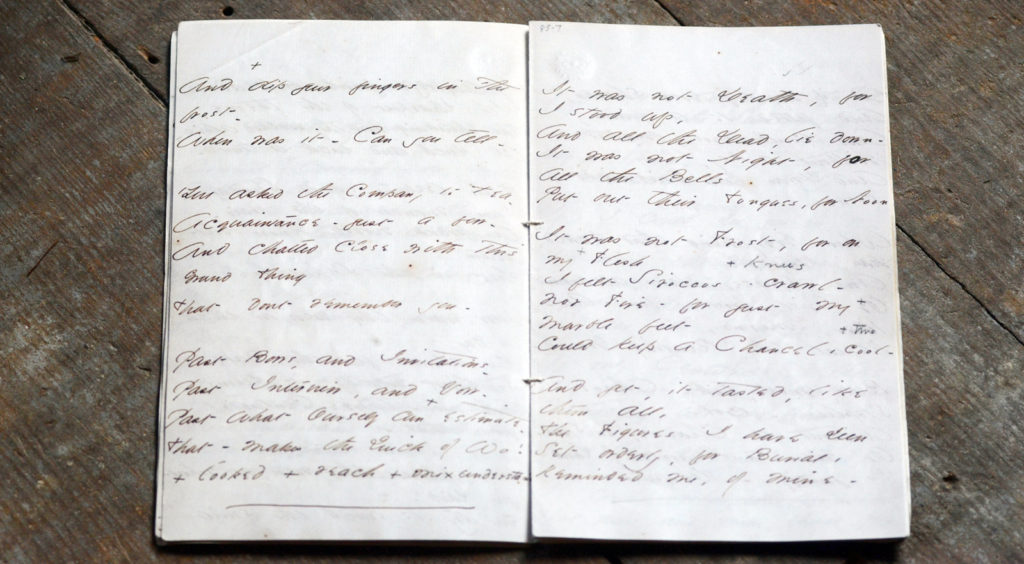 +
And dip your fingers in the
frost -
When was it - Can you tell -
Who asked the Company to tea -
Acquaintance - just a few -
And chatted close with this
Grand thing
That dont remember you -
Past Bows, and Invitations -
Past Interview, and Vow -
+
Past what Ourself can estimate -
That - makes the Quick of Wo!
+ looked + reach +
95-7
It was not Death, for
I stood up,
And all the Dead, lie down -
It was not Night, for
all the Bells
Put out their Tongues, for Noon
It was not Frost, for on
my Flesh + Knees
I felt Siroccos - crawl -
Nor Fire - for just my +
marble feet + two
Could keep a Chancel, cool -
And yet, it tasted, like
them all,
The Figures I have seen
Set orderly, for Burial,
Reminded me, of mine -